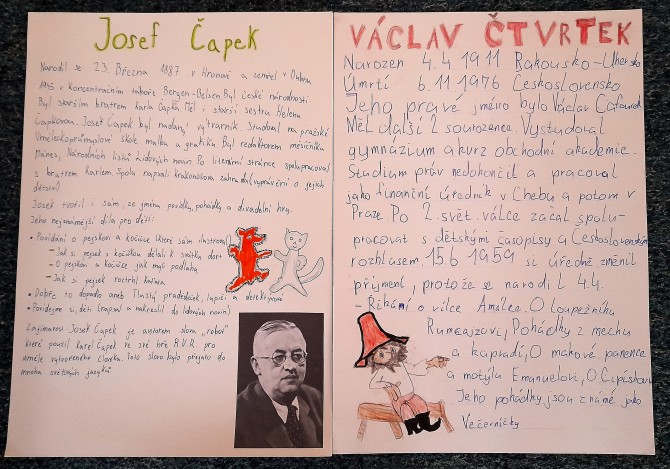 Josef Čapek
Narodil se 23. Března 1887 v Hronově a zemřel v Dubnu
1945 v koncentračním táboře Bergen-Belsen. Byl české národnosti.
Byl starším bratrem karla Čapka. Měl i starší sestru Helenu
Čapkovou. Josef Čapek byl nadaný výtvarník. Studoval na pražské
Uměleckoprůmyslové škole malbu a grafiku. Byl redaktorem měsíčníku
Mánes, Národních listů, Lidových novin. Po literární stránce spolupracoval
s bratrem Karlem. Spolu napsali Krakonošova zahrada (vyprávění o jejich
dětství)
Josek tvořil i sám, ze jména povídky, pohádky a divadelní hry.
Jeho nejznámější díla pro děti:
• Povídání o pejskovi a kočičce (které sám ilustroval)
- Jak si pejsek s kočičkou dělali k svátku dort
- O pejskovi a kočičce jak myli podlahu
- Jak si pejsek roztrhl kaťata
• Dobře to dopadlo aneb Tlustý pradědeček, lupiči a detektývové
• Povídejme si, děti (napsal a nakreslil do lidových novin)
Zajímavost Josef Čapek je autorem slova "robot"
které použil Karel Čapek ve své hře R.U.R. pro
uměle vytvořeného člověka. Toto slovo bylo přejato do
mnoha světových jazyků.
VÁCLAV ČTVRTEK
Narozen 4.4 1911 Rakousko-Uhersko
Úmrtí 6.11 1976 Československo
Jeho pravé jméno bylo Václav Cafourek
Měl další 2 sourozence. Vystudoval
gymnázium a kurz obchodní akademie.
Stadium práv nedokončil a pracoval
jako finanční úředník v Chebu a potom v
Praze Po 2. svět. válce začal spolu-
pracovat s dětskými časopisy a Československým
rozhlasem 15.6 1959 si úředně změnil
příjmení, protože se narodil 4.4.
- Říkání o víle Amálce. O loupežníku
Rumcajzovi, Pohádky z mechu
a kapradí, O makové panence
a motýlu Emanuelovi, O Cipískovi
Jeho pohádky jsou známé jako
Večerníčky